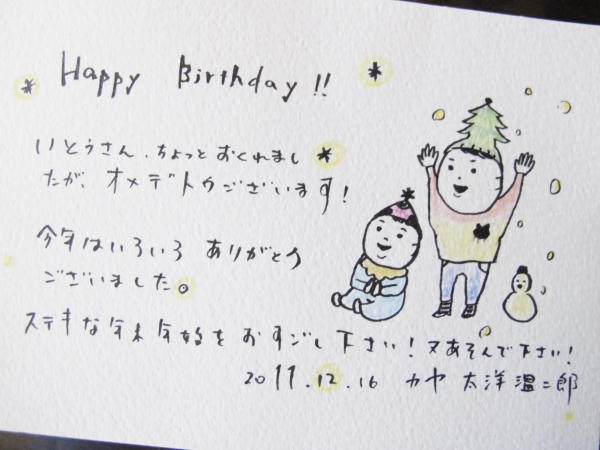 Happy Birthday!!
いとうさん、ちょっとおくれまし
たが、オメデトウございます!
今年はいろいろ ありがとう
ございました。
ステキな年末年始をおすごし下さい!又あそんで下さい!
2011.12.16 カヤ 太洋温二郎